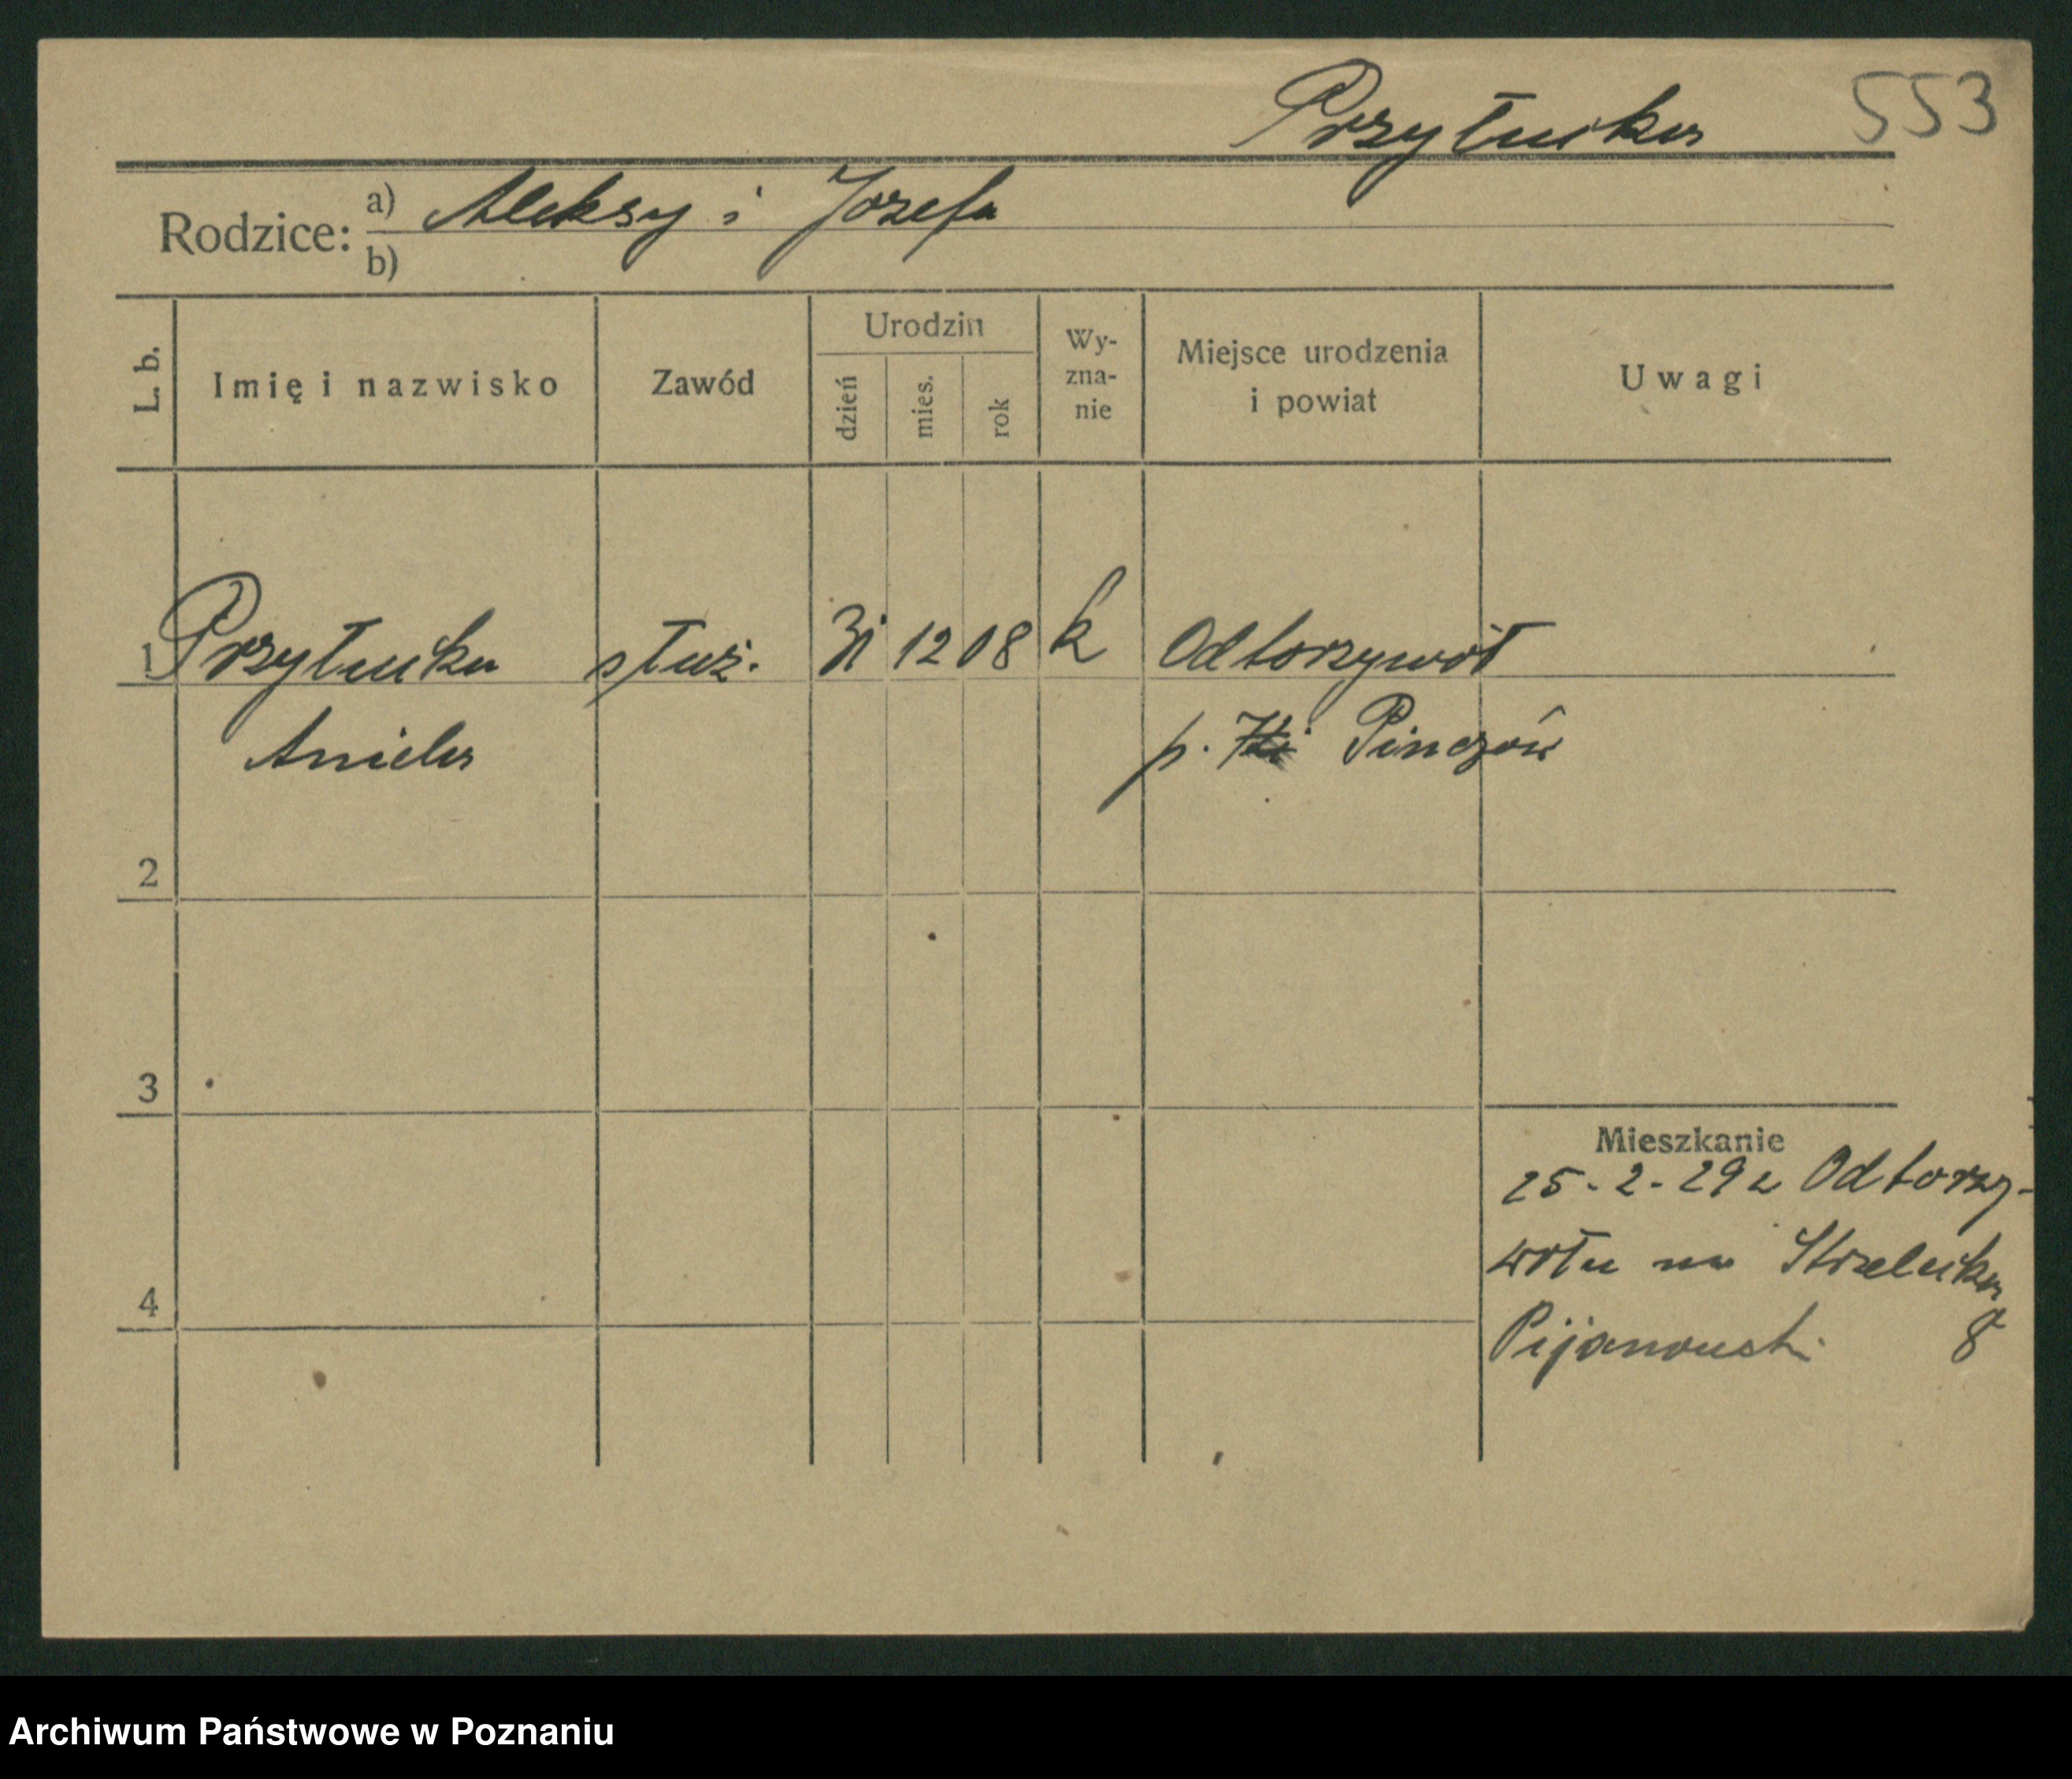 Przyłucka 553
Rodzice: a) Aleksy i Jozefa
b)
L. b. Imię i nazwisko Zawód Urodzin dzień mies. rok Wy-zna-nie Miejsce urodzenia i powiat Uwagi
1 Przyłucka służ. 31 12 08 k Odtorzywół
Aniela p. Pinczów
2
3
Mieszkanie
25-2-29 z Odtorzy-
wołu na Strzelecka
4
Pijanowski 8
Archiwum Państwowe w Poznaniu